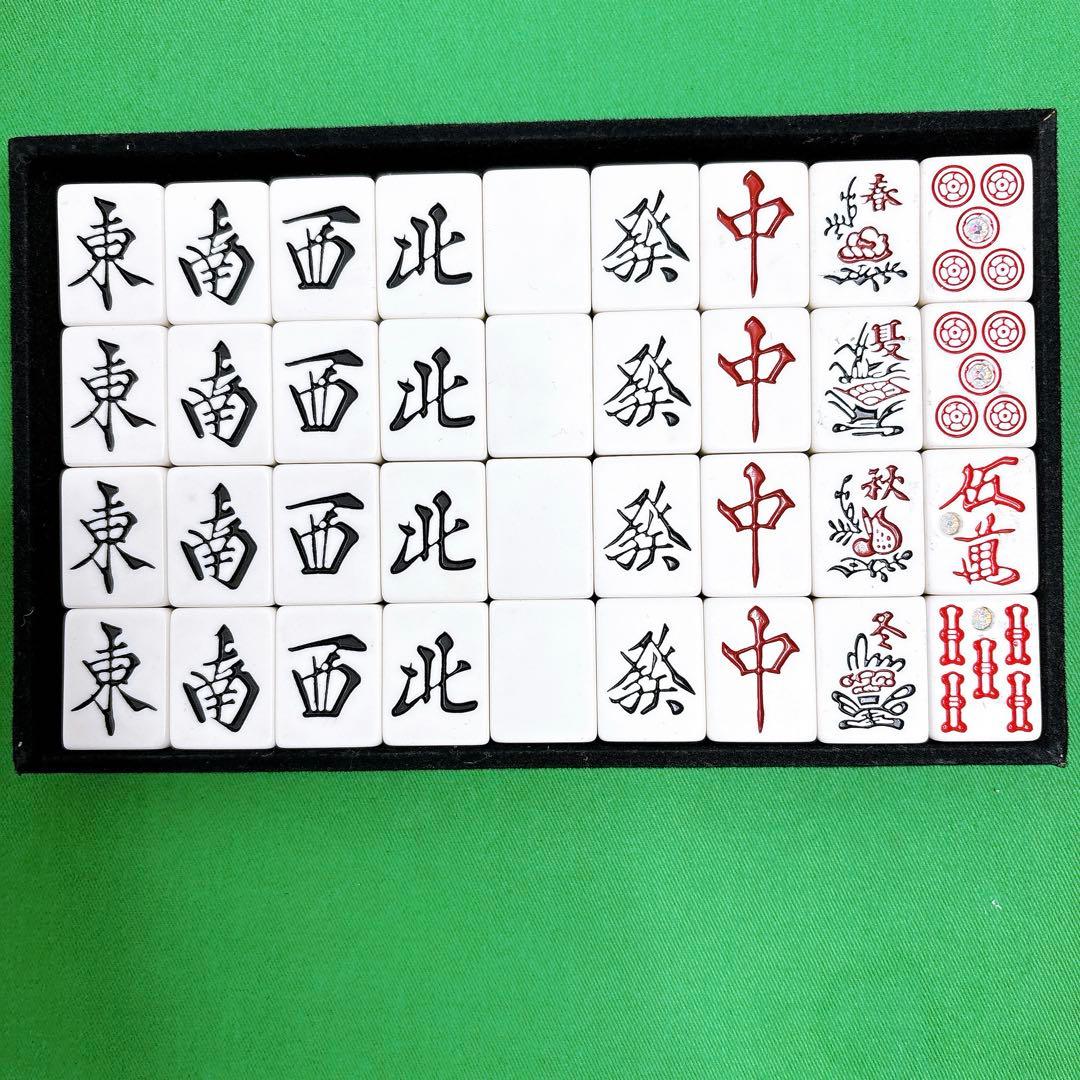 東 南 西 北 發 中 春
東 南 西 北 發 中 夏
東 南 西 北 發 中 秋 伍萬
東 南 西 北 發 中 冬